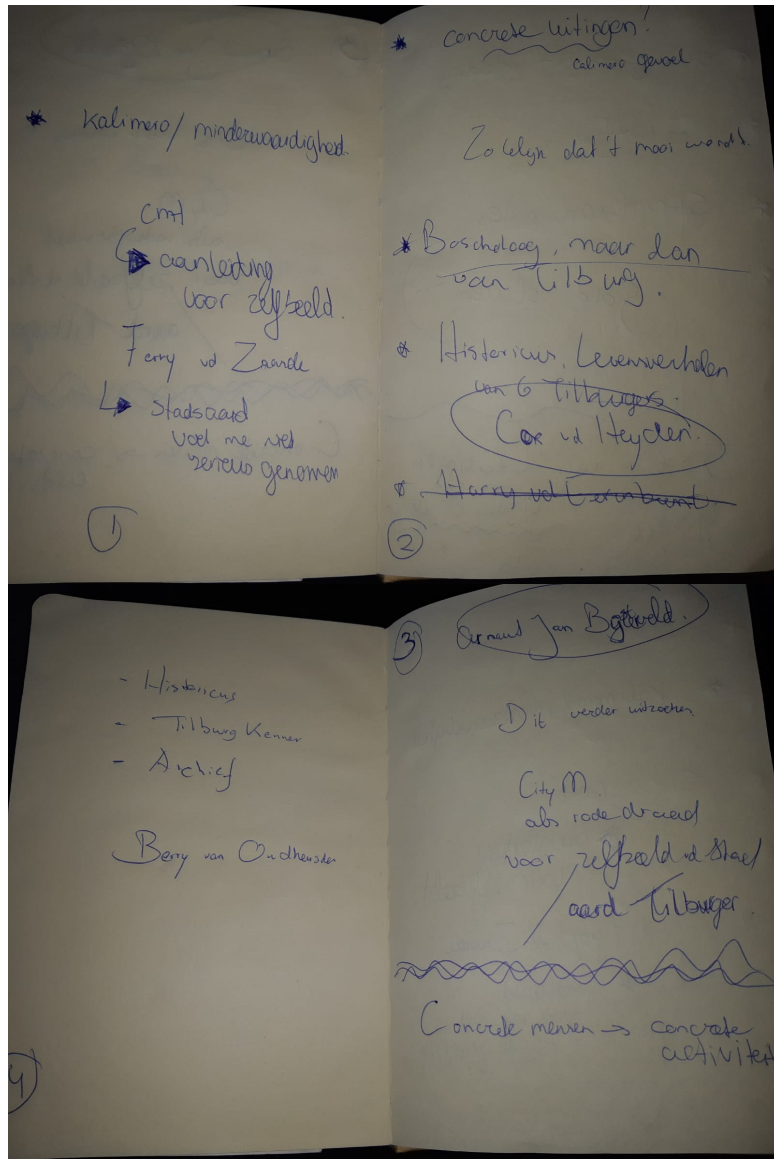 * Kalimero/ minderwaardigheid
cmt
↳ aanleiding
voor zelfbeeld.
Ferry vd Zaande
↳ stadsaard
voel me niet
serieus genomen
1
* concrete uitingen!
calimero gevoel
Zo lelijk dat 't mooi wordt.
* Boscholoog, maar dan
van Tilburg.
* Historicus, Levensverhalen
van 6 Tilburgers.
Cor vd Heyden.
* Harry vd
2
- Historicus
- Tilburg Kenner
- Archief
Berry van Oudheusden
4
3 Arnaud Jan
Dit verder uitzoeken
City M
als rode draad
voor zelfbeeld vd Stad
/ aard Tilburger
Concrete mensen → concrete
activiteit